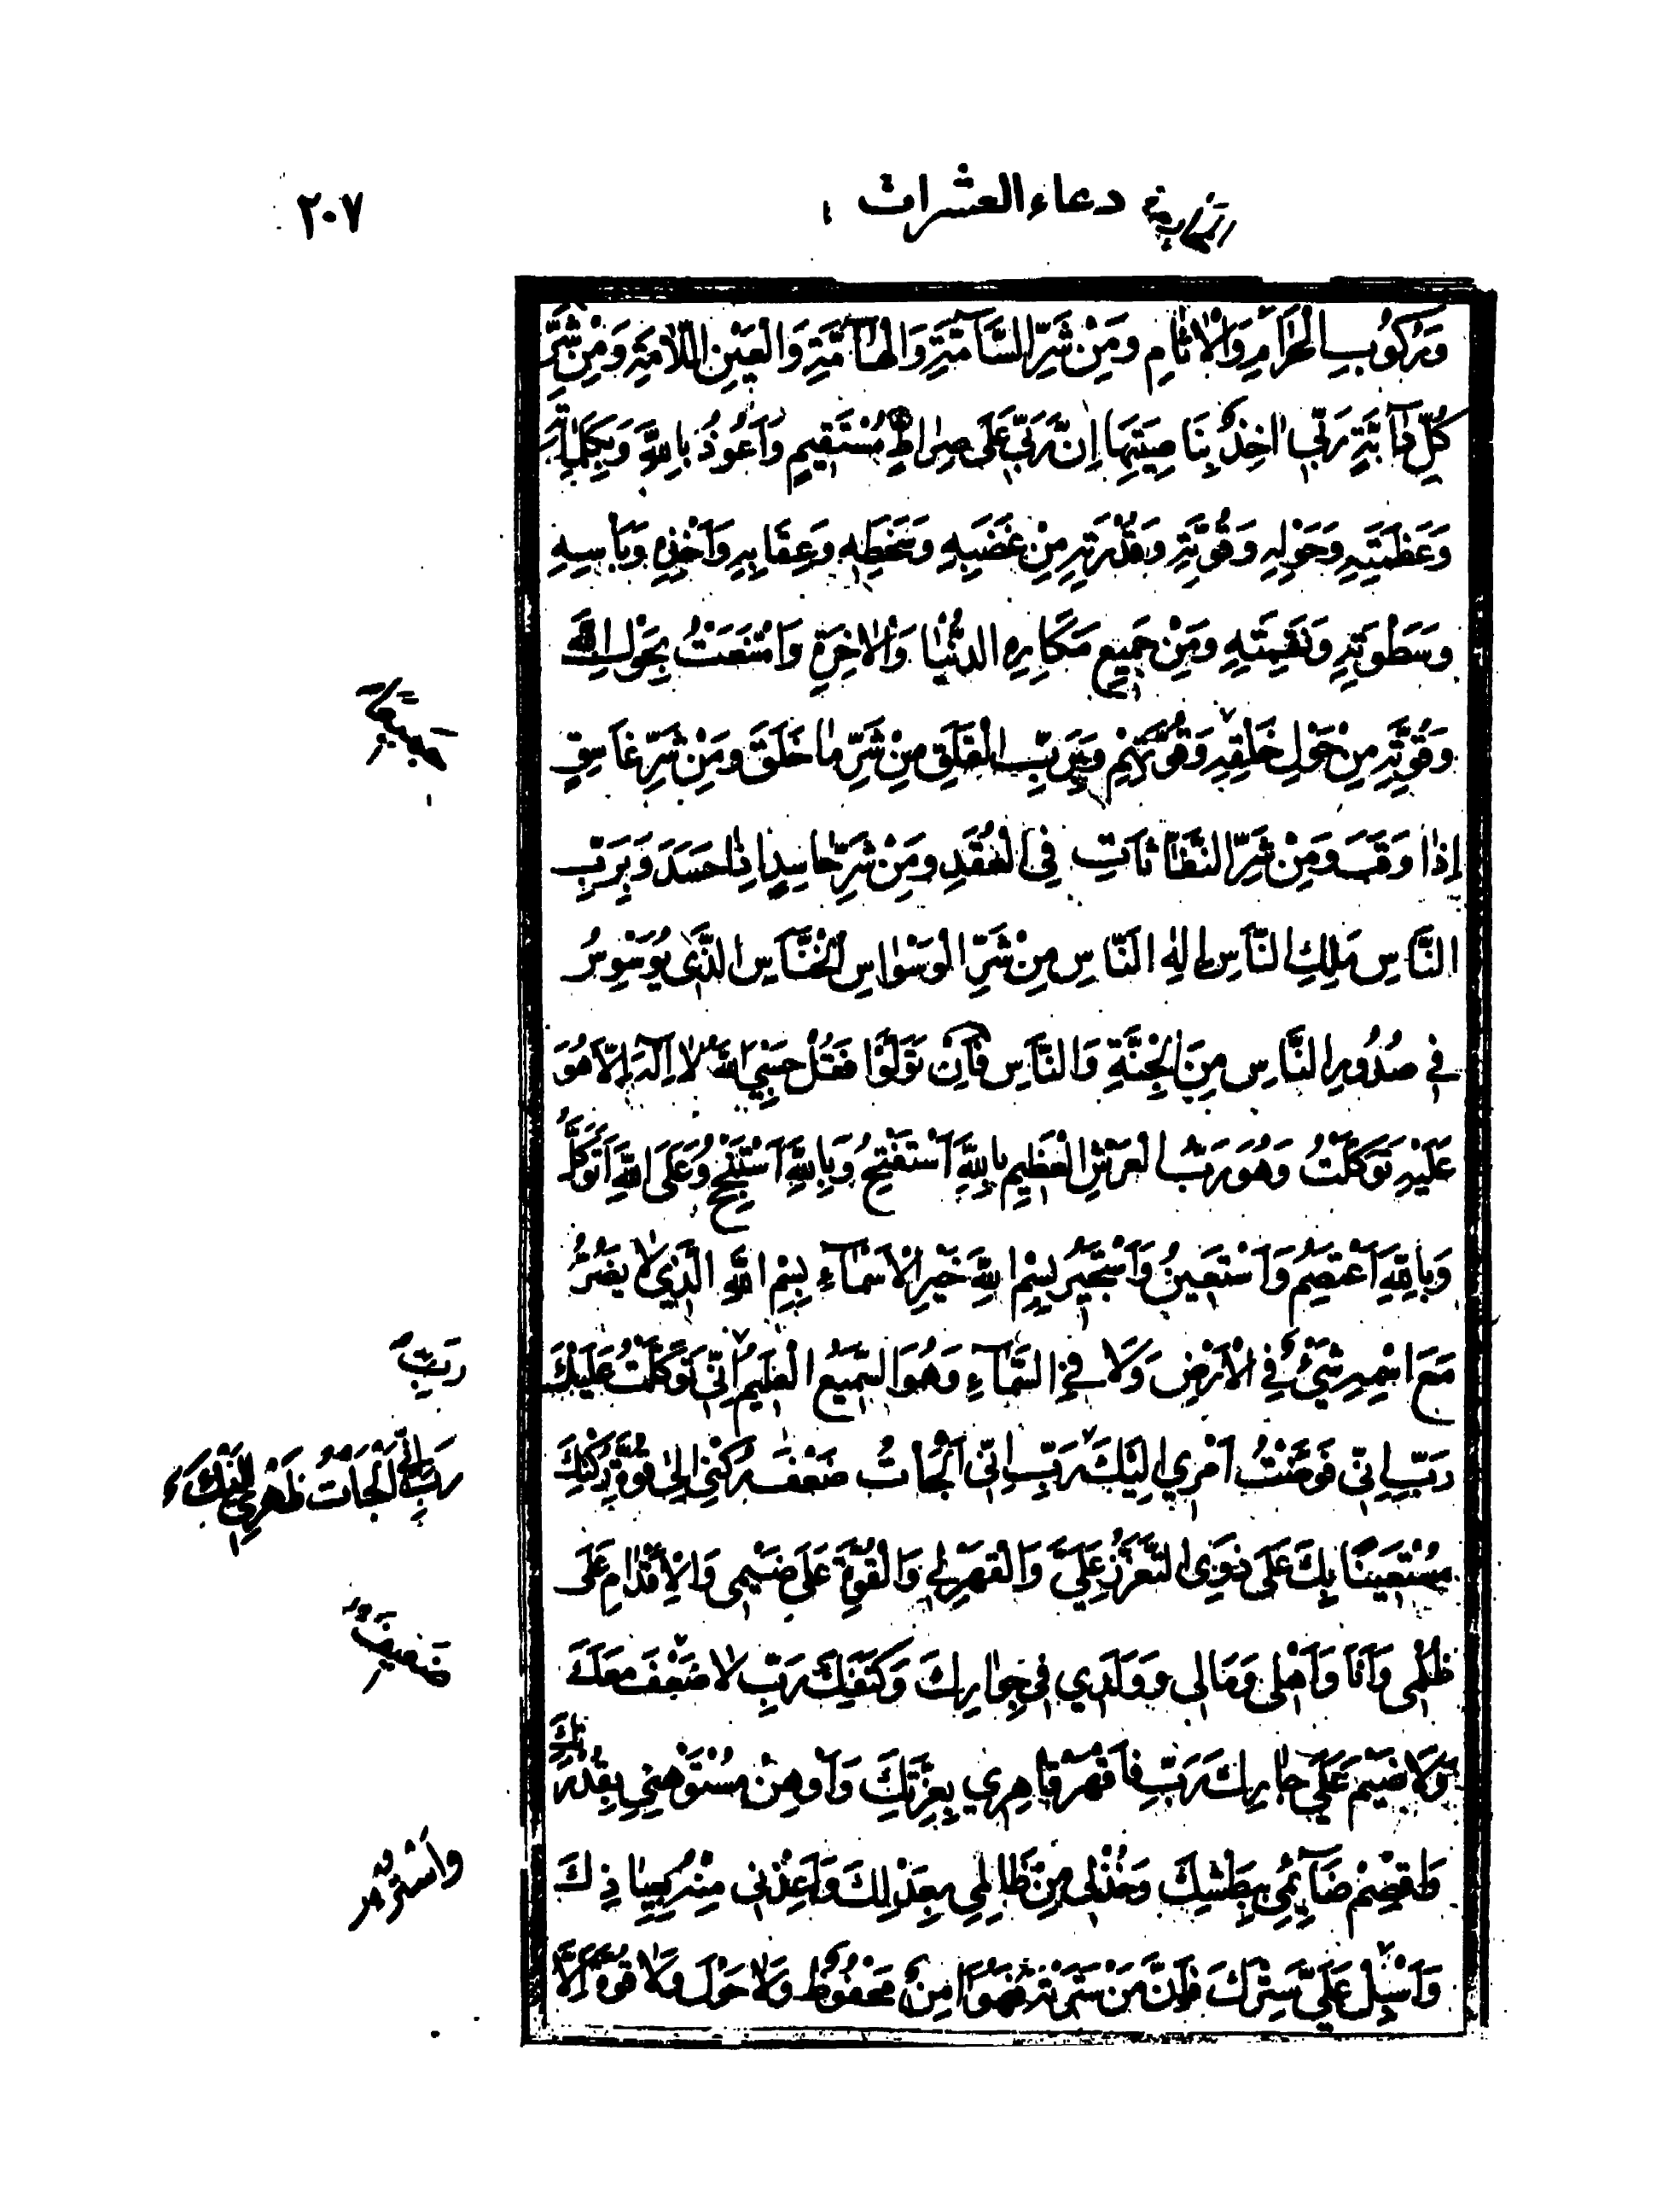 دعاء العشرات
٢٠٧
وَرُكُوبِ الْحَرَامِ وَالْاٰثَامِ وَمِنْ شَرِّ السَّآمَّةِ وَالْهَآمَّةِ وَالْعَيْنِ اللَّامَّةِ وَمِنْ شَرِّ
كُلِّ دَآبَّةٍ رَبِّي اٰخِذٌ بِنَاصِيَتِهَا اِنَّ رَبِّي عَلَى صِرَاطٍ مُسْتَقِيمٍ وَاَعُوذُ بِاللّٰهِ وَبِكَلِمَاتِهِ
وَعَظَمَتِهِ وَحَوْلِهِ وَقُوَّتِهِ وَقُدْرَتِهِ مِنْ غَضَبِهِ وَسَخَطِهِ وَعِقَابِهِ وَاَخْذِهِ وَبَأْسِهِ
وَسَطْوَتِهِ وَنَقِمَتِهِ وَمِنْ جَمِيعِ مَكَارِهِ الدُّنْيَا وَالْاٰخِرَةِ وَامْتَنَعْتُ بِحَوْلِ اللّٰهِ
وَقُوَّتِهِ مِنْ حَوْلِ خَلْقِهِ وَقُوَّتِهِمْ وَبِرَبِّ الْفَلَقِ مِنْ شَرِّ مَا خَلَقَ وَمِنْ شَرِّ غَاسِقٍ
جَمِيعًا
اِذَا وَقَبَ وَمِنْ شَرِّ النَّفَّاثَاتِ فِي الْعُقَدِ وَمِنْ شَرِّ حَاسِدٍ اِذَا حَسَدَ وَبِرَبِّ
النَّاسِ مَلِكِ النَّاسِ اِلٰهِ النَّاسِ مِنْ شَرِّ الْوَسْوَاسِ الْخَنَّاسِ الَّذِى يُوَسْوِسُ
فِي صُدُورِ النَّاسِ مِنَ الْجِنَّةِ وَالنَّاسِ فَاِنْ تَوَلَّوْا فَقُلْ حَسْبِيَ اللّٰهُ لَا اِلٰهَ اِلَّا هُوَ
عَلَيْهِ تَوَكَّلْتُ وَهُوَ رَبُّ الْعَرْشِ الْعَظِيمِ بِاللّٰهِ اَسْتَفْتِحُ وَبِاللّٰهِ اَسْتَنْجِحُ وَعَلَى اللّٰهِ اَتَوَكَّلُ
وَبِاللّٰهِ اَعْتَصِمُ وَاَسْتَعِينُ وَاَسْتَجِيرُ بِسْمِ اللّٰهِ خَيْرِ الْاَسْمَآءِ بِسْمِ اللّٰهِ الَّذِي لَا يَضُرُّ
مَعَ اسْمِهِ شَيْءٌ فِي الْاَرْضِ وَلَا فِي السَّمَآءِ وَهُوَ السَّمِيعُ الْعَلِيمُ اِنِّي تَوَكَّلْتُ عَلَيْكَ
رَبِّ
رَبِّ اِنِّي فَوَّضْتُ اَمْرِي اِلَيْكَ رَبِّ اِنِّي اَلْجَأْتُ ضَعْفَ رُكْنِي اِلَى قُوَّةِ رُكْنِكَ
رَبِّ اِنِّي اَلْجَأْتُ ظَهْرِي اِلَيْكَ
مُسْتَعِينًا بِكَ عَلَى ذَوِى التَّعَزُّزِ عَلَيَّ وَالْقَهْرِ لِي وَالْقُوَّةِ عَلَى ضَيْمِي وَالْاِقْدَامِ عَلَى
ظُلْمِى وَاَنَا وَاَهْلِى وَمَالِى وَوَلَدِي فِي جِوَارِكَ وَكَنَفِكَ رَبِّ لَا ضَعْفَ مَعَكَ
ضَعِيفَ
وَلَا ضَيْمَ عَلَى جَارِكَ رَبِّ فَاقْهَرْ قَاهِرِي بِعِزَّتِكَ وَاَوْهِنْ مُسْتَوْهِنِي بِقُدْرَتِكَ
وَاقْصِمْ ضَآئِمِي بِبَطْشِكَ وَخُذْ لِى مِنْ ظَالِمِي بِعَدْلِكَ وَاَعِذْنِى مِنْهُ بِعِيَاذِكَ
وَاَسْبِلْ عَلَيَّ سِتْرَكَ فَاِنَّ مَنْ سَتَرْتَهُ فَهُوَ اٰمِنٌ مَحْفُوظٌ وَلَا حَوْلَ وَلَا قُوَّةَ اِلَّا